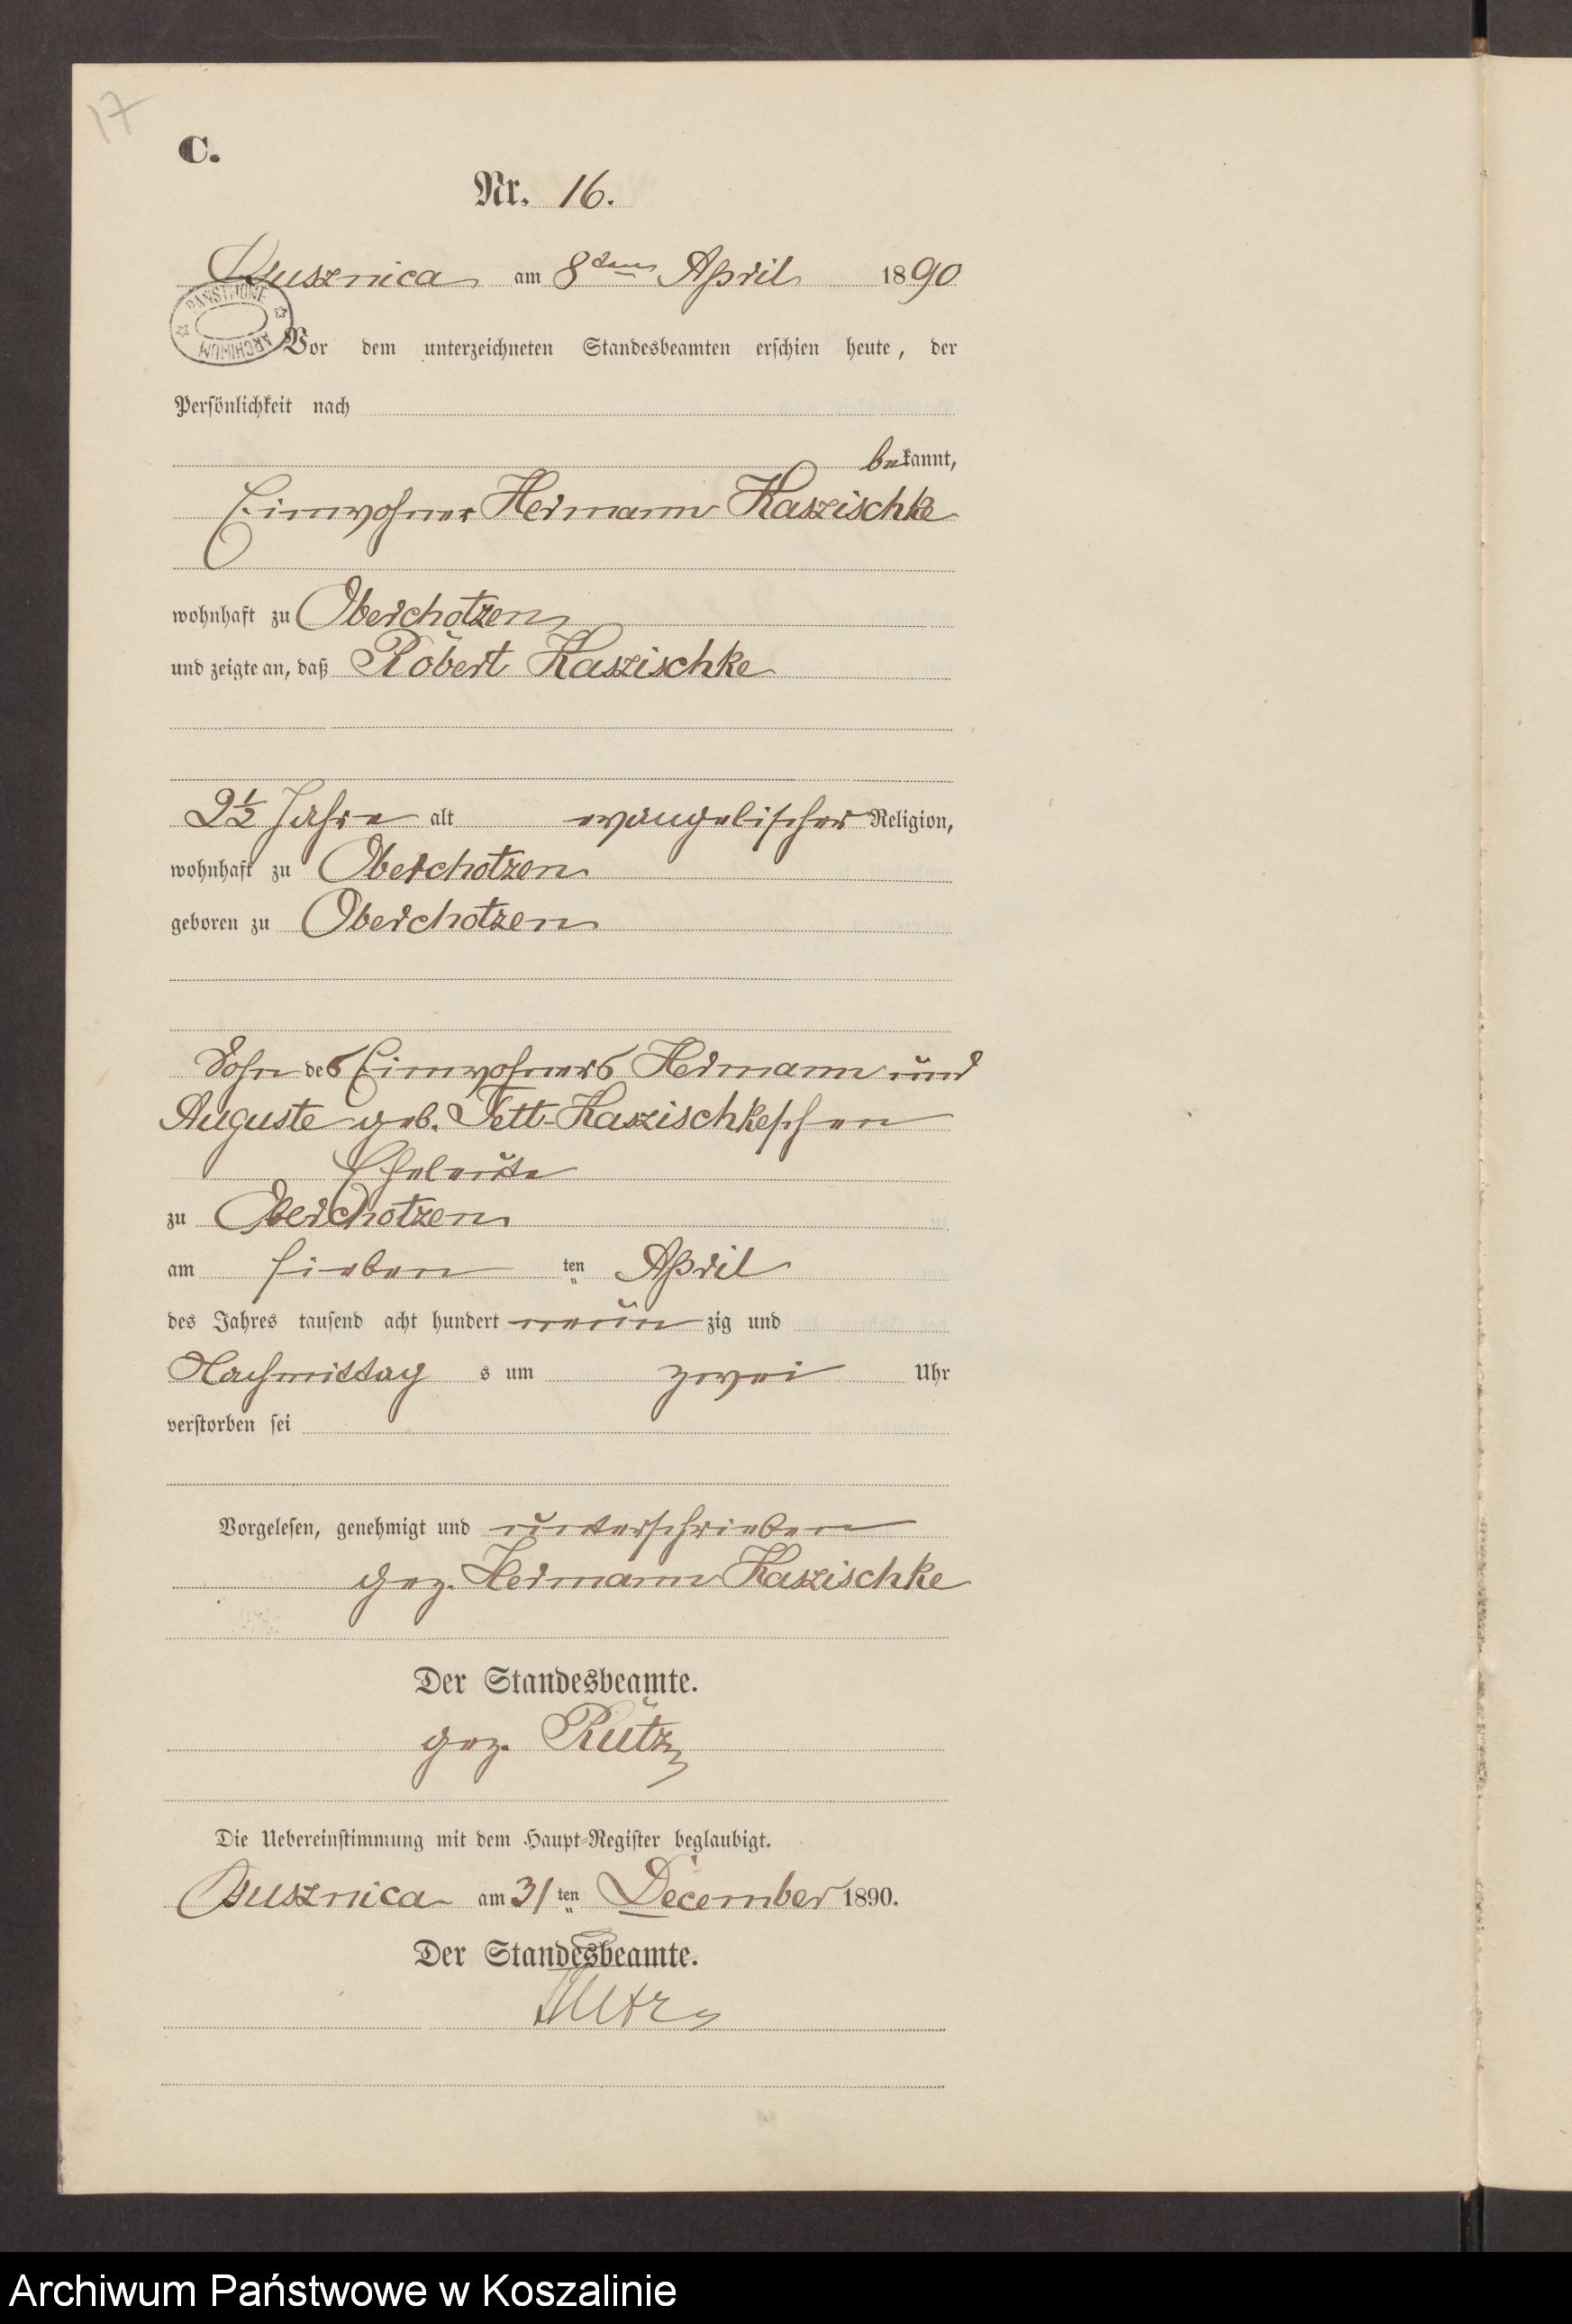 17
C.
Nr. 16.
Busznica am 8ten April 1890
PAŃSTWOWE ARCHIWUM
Vor dem unterzeichneten Standesbeamten erschien heute, der
Persönlichkeit nach
bekannt,
Einwohner Hermann Kaszischke
wohnhaft zu Oberchotzen
und zeigte an, daß Robert Kaszischke
2½ Jahre alt evangelischer Religion,
wohnhaft zu Oberchotzen
geboren zu Oberchotzen
Sohn des Einwohners Hermann und
Auguste geb. Tett-Kaszischkeschen
Eheleute
zu Oberchotzen
am sieben ten April
des Jahres tausend acht hundert neun zig und
Nachmittag s um zwei Uhr
verstorben sei
Vorgelesen, genehmigt und unterschrieben
gez. Hermann Kaszischke
Der Standesbeamte.
gez. Rutz
Die Uebereinstimmung mit dem Haupt-Register beglaubigt.
Busznica am 31 ten December 1890.
Der Standesbeamte.
Rutz
Archiwum Państwowe w Koszalinie